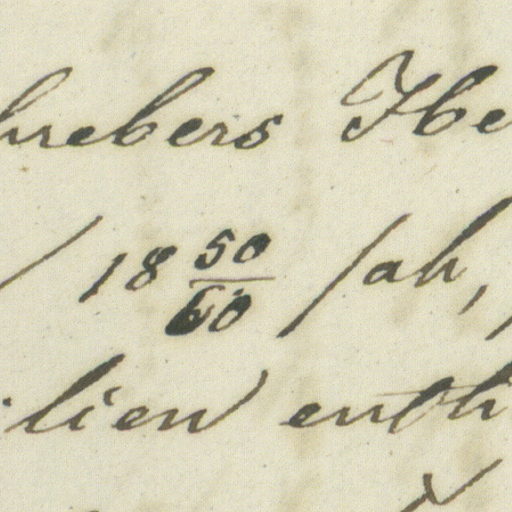 hrebers Ibe
18 50/60 sah,
lien enth